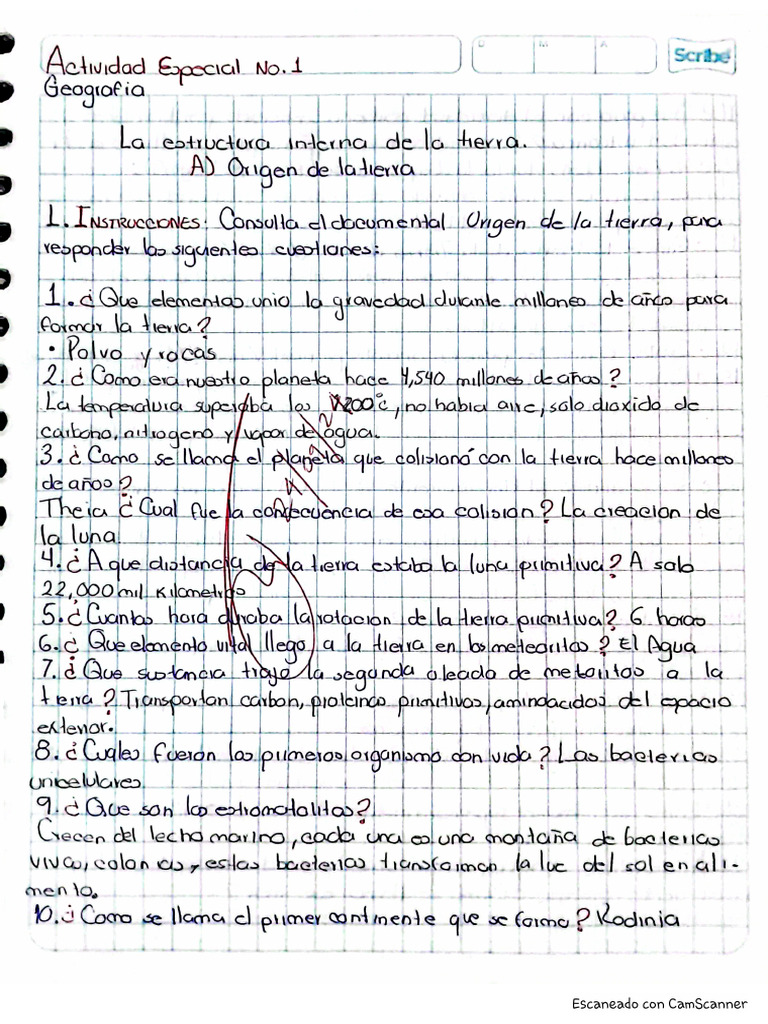 Actividad Especial No. 1
D M A
Scribe
Geografia
La estructura interna de la tierra.
A) Origen de la tierra
1. INSTRUCCIONES: Consulta el documental Origen de la tierra, para
responder las siguientes cuestiones:
1. ¿Que elementos unio la gravedad durante millones de años para
formar la tierra?
• Polvo y rocas
2. ¿Como era nuestro planeta hace 4,540 millones de años?
La temperatura superaba los 1200°c, no habia aire, solo dioxido de
carbono, nitrogeno y vapor de agua.
3. ¿Como se llama el planeta que colisionó con la tierra hace millones
de años?
Theia ¿Cual fue la consecuencia de esa colision? La creacion de
la luna.
4. ¿A que distancia de la tierra estaba la luna primitiva? A solo
22,000 mil kilometros
5. ¿Cuantas hora duraba la rotacion de la tierra primitiva? 6 horas
6. ¿Que elemento vital llego a la tierra en los meteoritos? El Agua
7. ¿Que sustancia trajo la segunda oleada de meteoritos a la
tierra? Transportan carbon, proteinas primitivas, aminoacidos del espacio
exterior.
8. ¿Cuales fueron los primeros organismo con vida? Las bacterias
unicelulares.
9. ¿Que son los estromatolitos?
Crecen del lecho marino, cada una es una montaña de bacterias
vivas, colonias, estas bacterias transforman la luz del sol en ali-
mento.
10. ¿Como se llama el primer continente que se formo? Rodinia
Escaneado con CamScanner